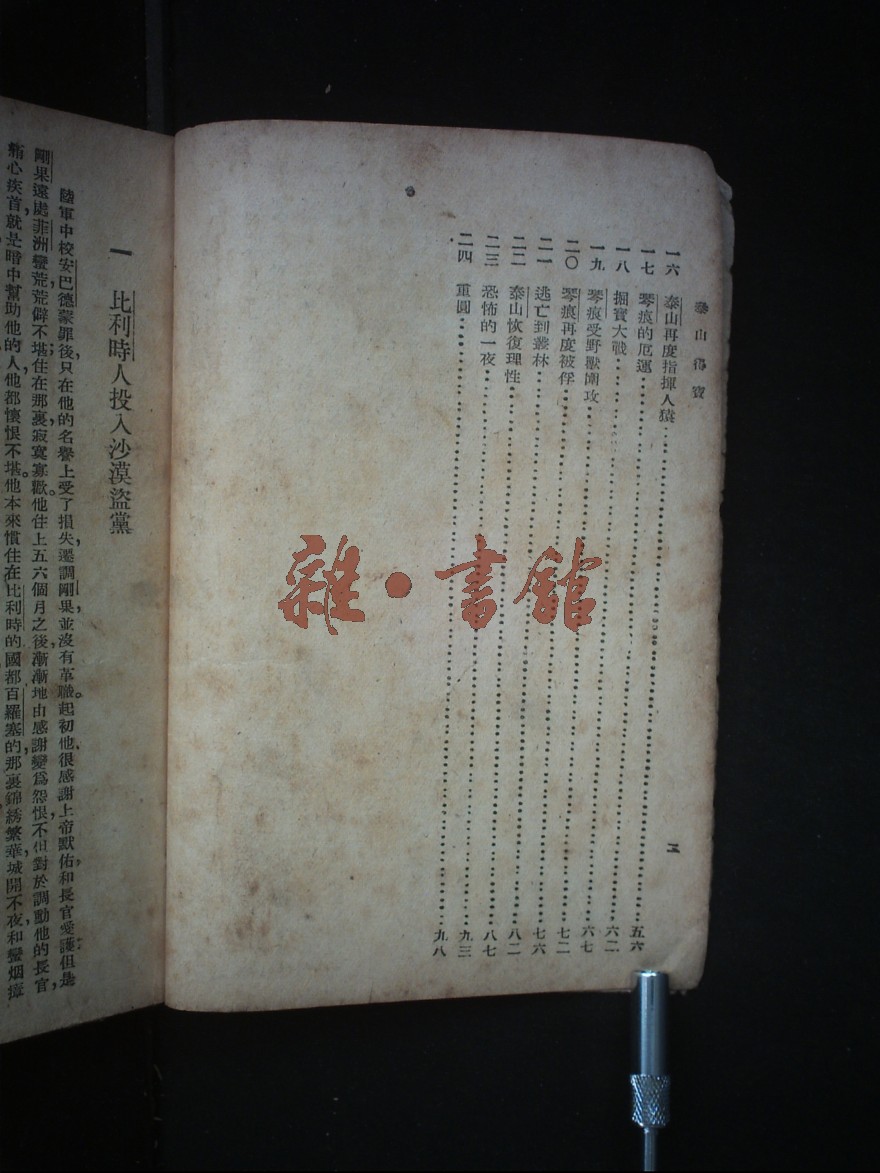 泰山得寶
一六 泰山再度指揮人猿……五六
一七 琴痕的厄運……六二
一八 掘寶大戰……六七
一九 琴痕受野獸圍攻……七二
二〇 琴痕再度被俘……七六
二一 逃亡到叢林……八二
二二 泰山恢復理性……八七
二三 恐怖的一夜……九三
二四 重圓……九八
二
雜·書館
一 比利時人投入沙漠盜黨
陸軍中校安巴德蒙罪後,只在他的名譽上受了損失,遷調剛果,並沒有革職。起初他很感謝上帝默佑和長官愛護,但是
剛果遠處非洲,蠻荒荒僻不堪,住在那裏,寂寞寡歡。他住上五六個月之後,漸漸地由感謝變爲怨恨,不但對於調動他的長官,
痛心疾首,就是暗中幫助他的人,他都懷恨不堪。他本來慣住在比利時的國都百羅塞的,那裏錦綉繁華,城開不夜,和蠻烟瘴